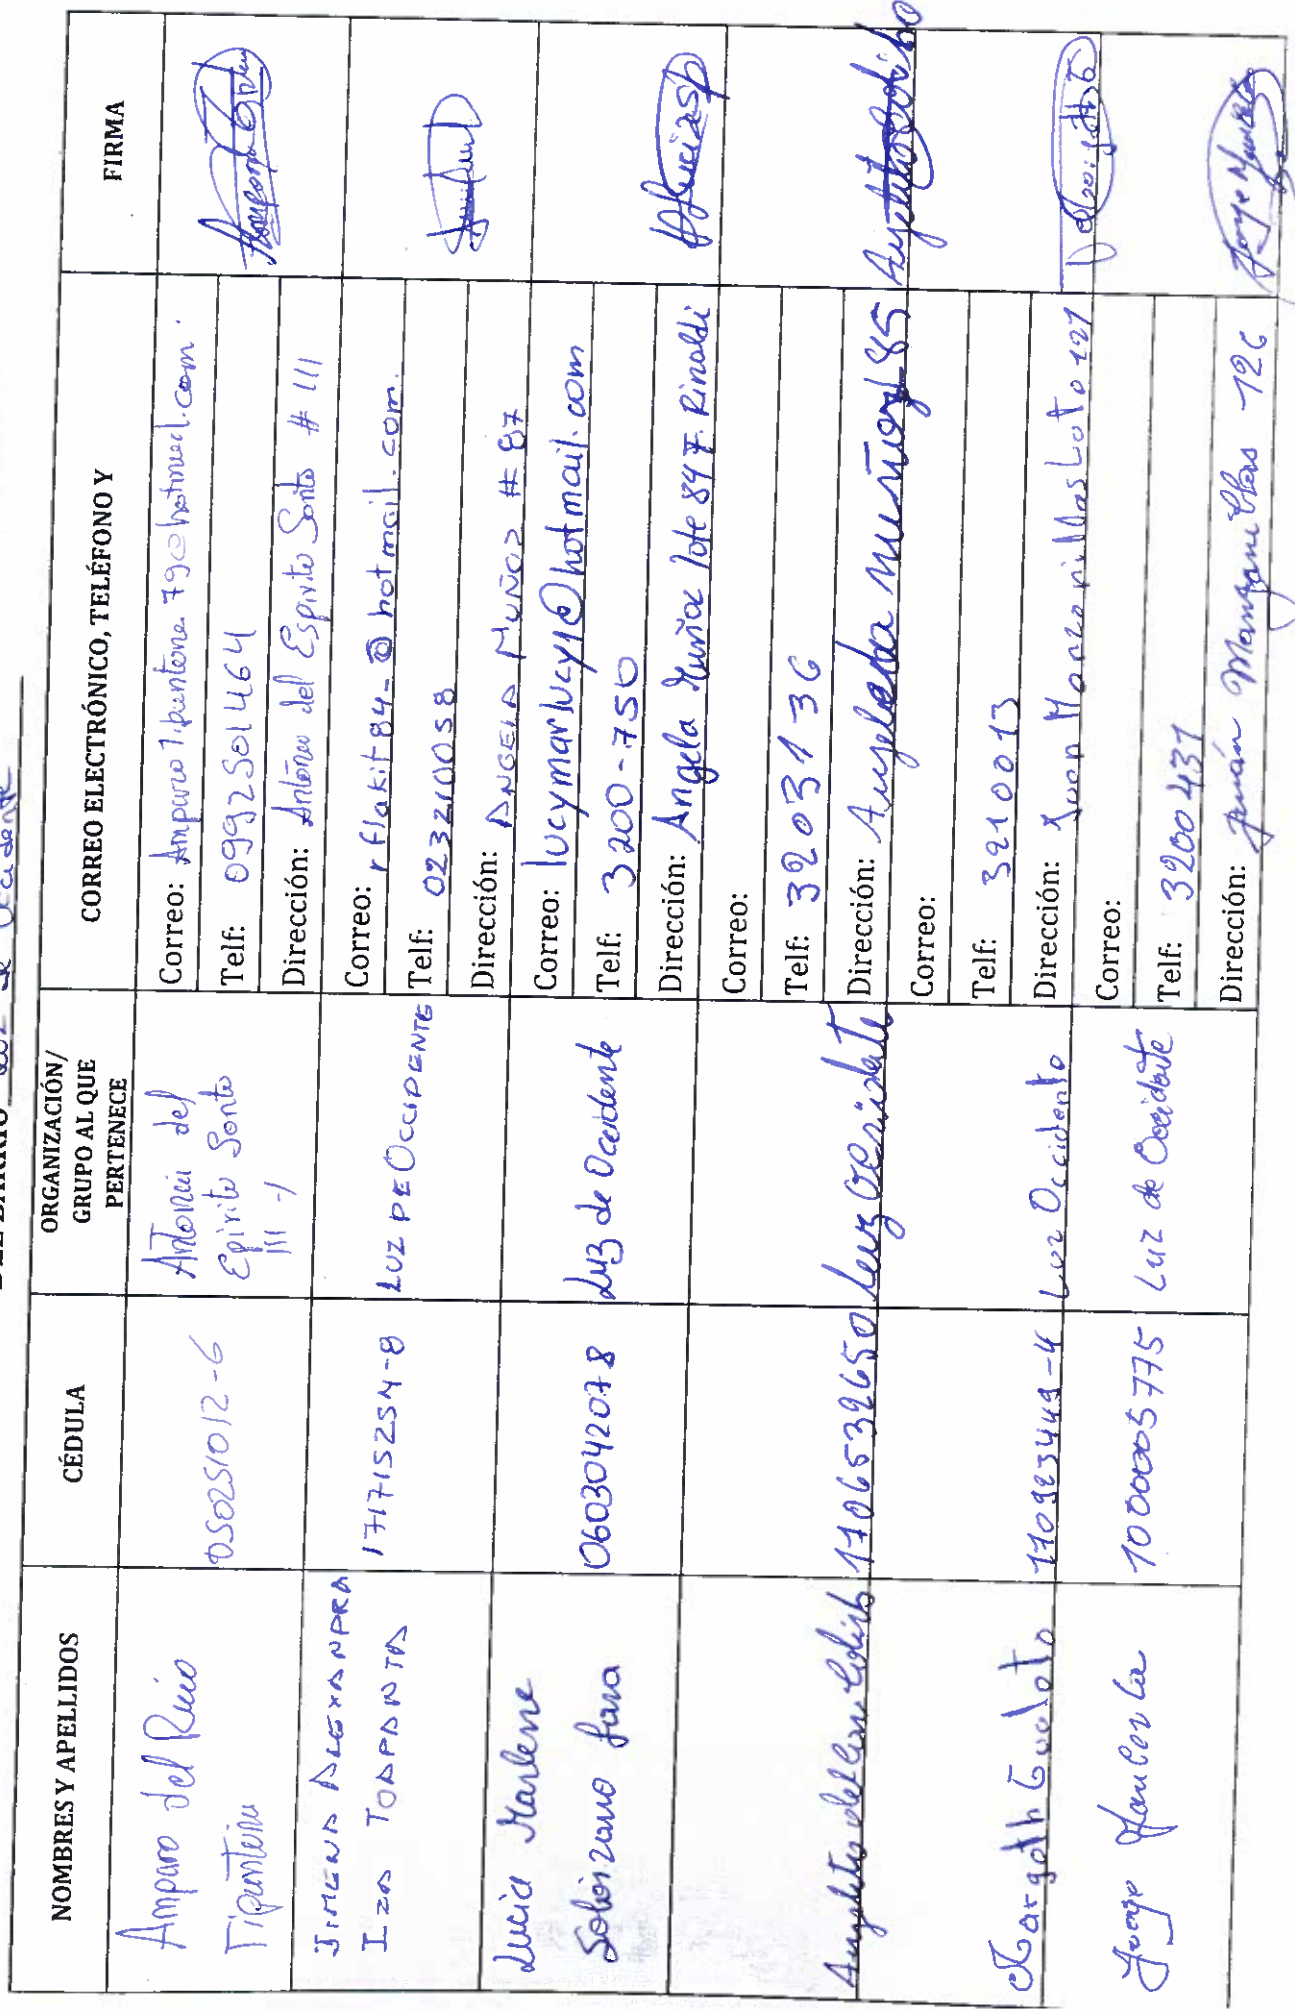 DEL BARRIO Luz de Occidente
NOMBRES Y APELLIDOS
CÉDULA
ORGANIZACIÓN/
GRUPO AL QUE
PERTENECE
CORREO ELECTRÓNICO, TELÉFONO Y
FIRMA
Amparo del Rocio
050251012-6
Antonio del
Epirito Santo
111
Correo:
Telf: 0992501464
Dirección: Antonio del Espirito Santo # 111
JIMENA ALEXANDRA
IZA TOAPANTA
171715254-8
LUZ DE OCCIDENTE
Correo: rflakit84_@hotmail.com.
Telf: 023210058
Dirección: ANGELA MUÑOZ # 87
Lucia Marlene
Solorzano
0603042078
Luz de Occidente
Correo: lucymarlucy1@hotmail.com
Telf: 3200-750
Dirección: Angela Muñoz lote 84 F. Rinaldi
1706539650
Luz Occidente
Correo:
Telf: 3203136
Dirección: Angela muñoz 85
Margoth Gualoto
170923449-4
Luz Occidente
Correo:
Telf: 3210013
Dirección: Juan Manzanillas Lote 127
Jorge
1000005775
Luz de Occidente
Correo:
Telf: 3200431
Dirección: Juan Manzanillas 126